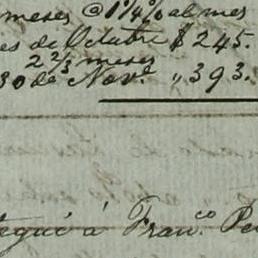 meses @ 1 1/4 % al mes
es de Octubre $ 245.
2 2/3 meses
30 de Nov.e " 393.
tegué á Fran.co Pe